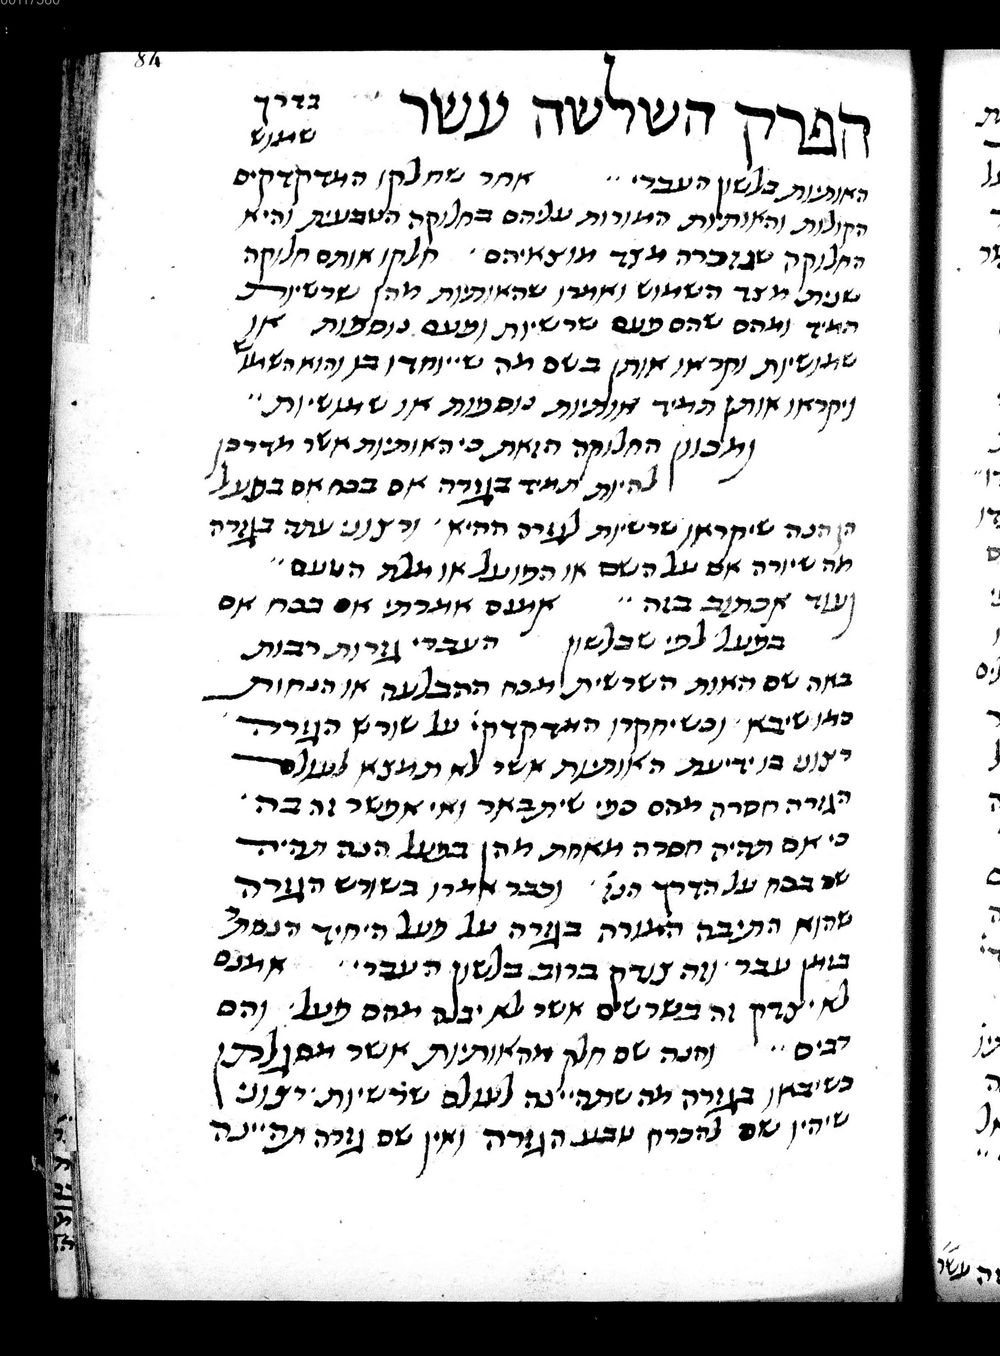 84
הפרק השלשה עשר בדרך
שמוש
האותיות בלשון העברי אחר שחלקו המדקדקים
הקולות והאותיות המורות עליהם בחלוקה הטבעית והיא
החלוקה שנזכרה מצד מוצאיהם חלקו אותם חלוקה
שנית מצד השמוש ואמרו שהאותיות מהן שרשיות
תמיד ומהם שהם פעם שרשיות ופעם נוספות או
שמושיות וקראו אותן בשם מה שייוחדו בו והוא השמוש
ויקראו אותן תמיד אותיות נוספות או שמושיות
ומכוון החלוקה הזאת כי האותיות אשר מדרכן
להיות תמיד בגזרה אם בכח אם בפעל
הן הנה שיקראו שרשיות לגזרה ההיא ורצוני עתה בגזרה
מה שיורה אם על השם או הפועל או מלת הטעם
ועוד אכתוב בזה אמנם אמרתי אם בכח אם
בפעל לפי שבלשון העברי גזרות רבות
באה שם האות השרשית מכח ההבלעה או הנחות
כמו שיבא וכשיחקרו המדקדקי' על שורש הגזרה
רצוני בו ידיעת האותיות אשר לא תמצא לעולם
הגזרה חסרה מהם כפי שיתבאר ואי אפשר זה בה
כי אם תהיה חסרה מאחת מהן בפעל הנה תהיה
שם בכח על הדרך הנז' וכבר אמרו בשורש הגזרה
שהוא התיבה המורה בגזרה על פעל היחיד הנסתר
בזמן עבר וזה צודק ברוב בלשון העברי אמנם
לא יצדק זה בשרשים אשר לא יבנה מהם פעל והם
רבים והנה שם חלק מהאותיות אשר מסגולתן
כשיבאו בגזרה מה שתהיינה לעולם שרשיות רצוני
שיהיו שם להכרח טבע הגזרה ואין שם גזרה תהיינה